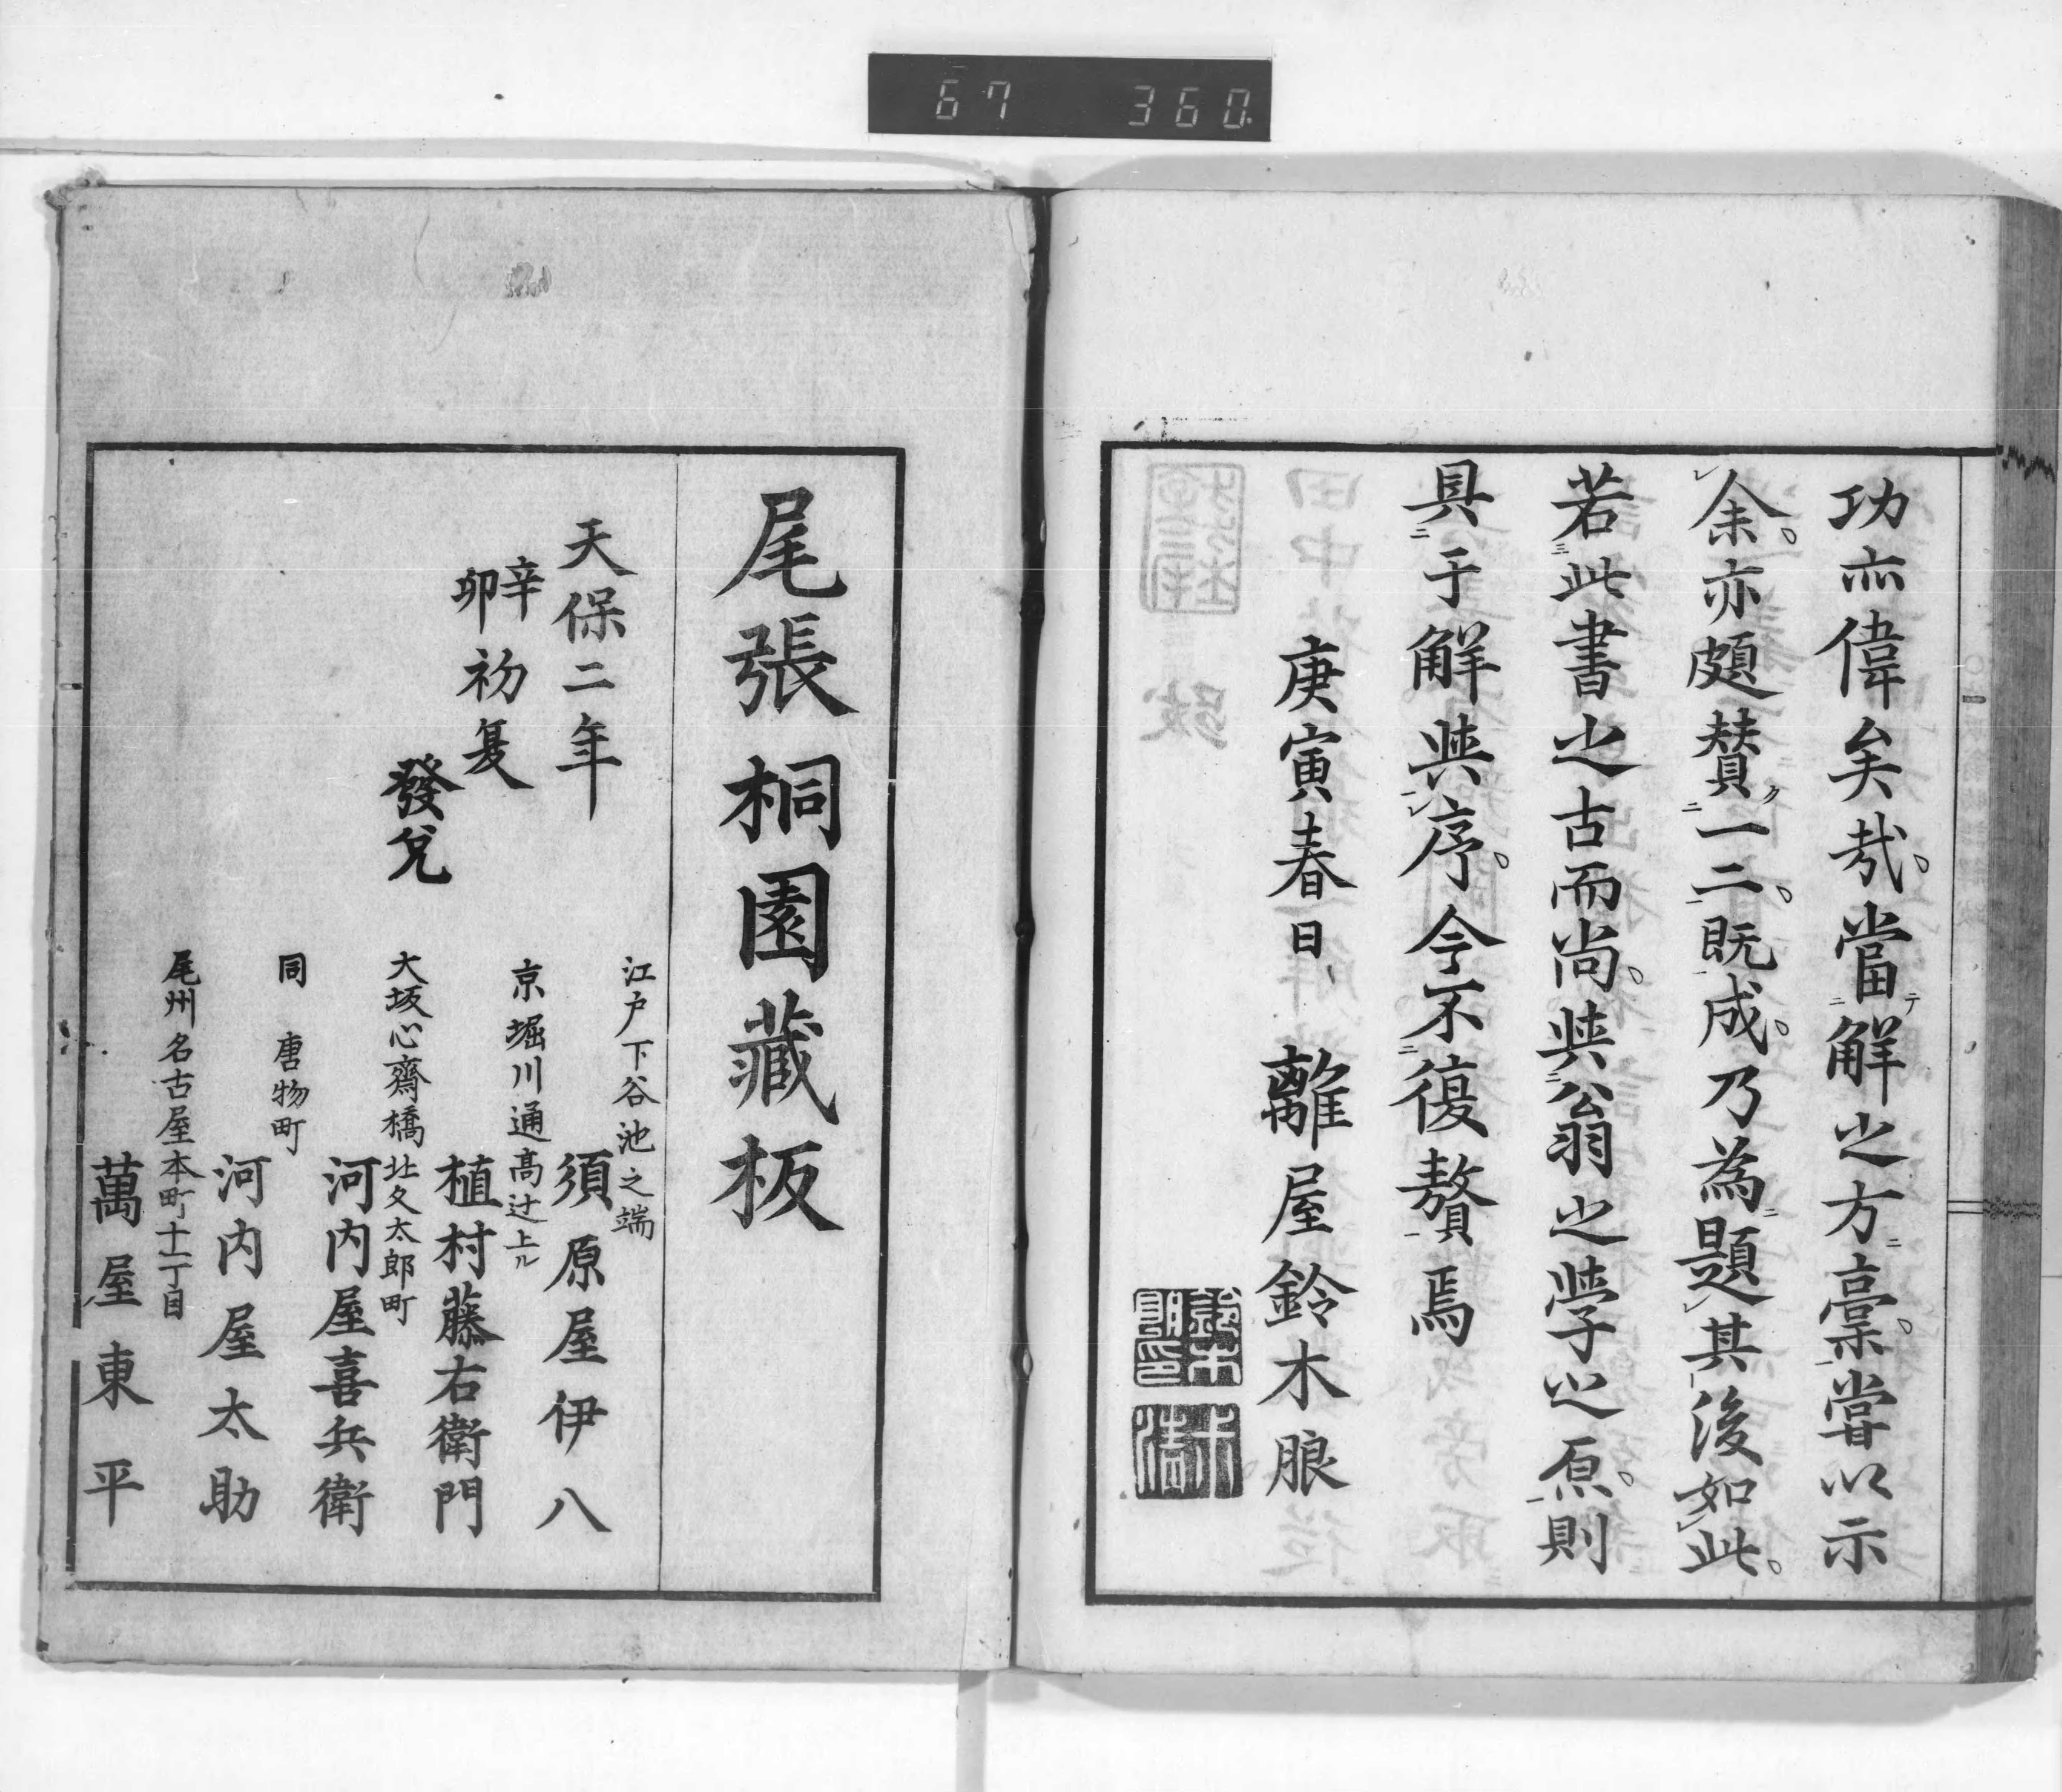 67 360
功亦偉矣哉。當解之方稾。嘗以示
余。亦頗贊一二。既成。乃為題其後如此。
若此書之古而尚。与公翁之学之原。則
具于解与序。今不復贅焉
庚寅春日 離屋鈴木朖
尾張桐園蔵板
天保二年
辛卯初夏
發兌
江戸下谷池之端
須原屋伊八
京堀川通高辻上ル
植村藤右衛門
大坂心齋橋北久太郎町
河内屋喜兵衛
同 唐物町
河内屋太助
尾州名古屋本町十一丁目
萬屋東平